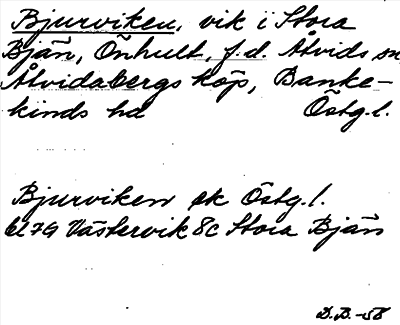 Bjurviken, vik i Stora
Bjän, Önhult, f.d. Åtvids sn
Åtvidabergs köp, Banke-
kinds hd Östg.l.
Bjurviken ek Östg.l.
bl 79 Västervik 8c Stora Bjän
D.B.-58